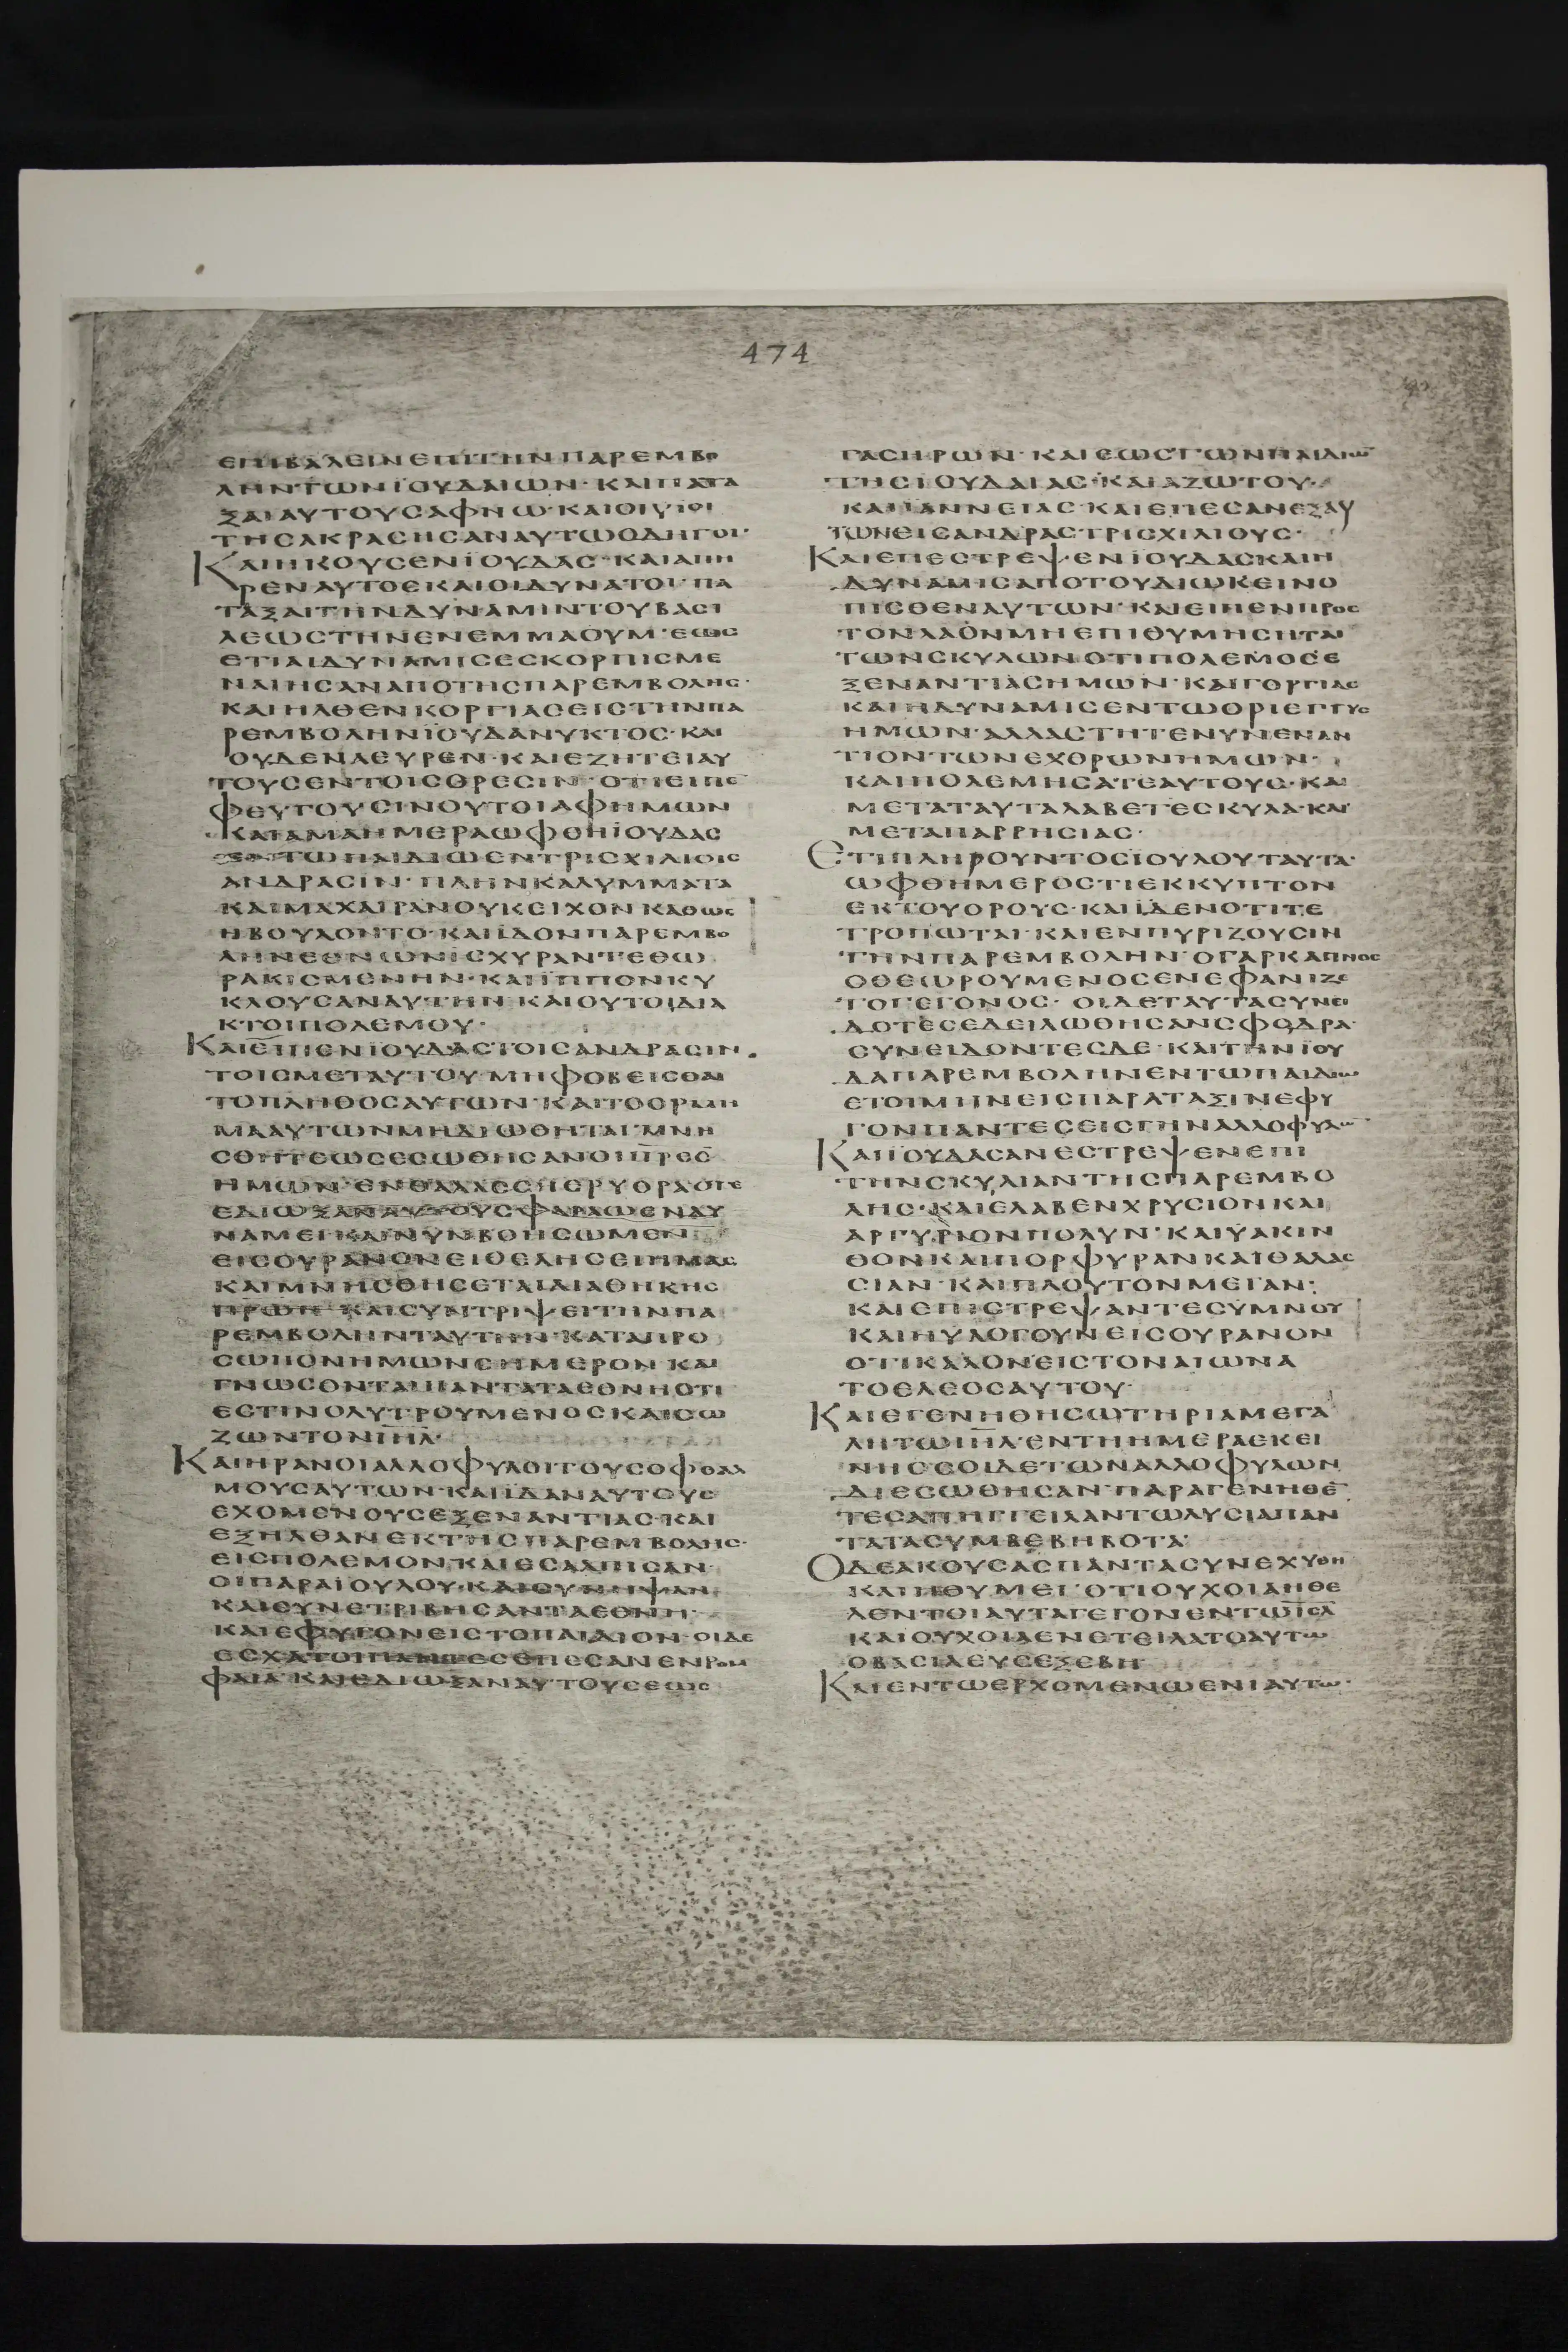 474
ΕΠΙΒΑΛΕΙΝΕΠΙΤΗΝΠΑΡΕΜΒΟ
ΛΗΝΤΩΝΪΟΥΔΑΙΩΝ·ΚΑΙΠΑΤΑ
ΞΑΙΑΥΤΟΥΣΑΦΝΩ·ΚΑΙΟΙΥΙΟΙ
ΤΗΣΑΚΡΑΣΗΣΑΝΑΥΤΩΟΔΗΓΟΙ·
ΚΑΙΗΚΟΥΣΕΝΪΟΥΔΑΣ·ΚΑΙΑΠΗ
ΡΕΝΑΥΤΟΣΚΑΙΟΙΔΥΝΑΤΟΙ·ΠΑ
ΤΑΞΑΙΤΗΝΔΥΝΑΜΙΝΤΟΥΒΑΣΙ
ΛΕΩΣΤΗΝΕΝΕΜΜΑΟΥΜ·ΕΩΣ
ΕΤΙΑΙΔΥΝΑΜΙΣΕΣΚΟΡΠΙΣΜΕ
ΝΑΙΗΣΑΝΑΠΟΤΗΣΠΑΡΕΜΒΟΛΗΣ·
ΚΑΙΗΛΘΕΝΚΟΡΓΙΑΣΕΙΣΤΗΝΠΑ
ΡΕΜΒΟΛΗΝΙΟΥΔΑΝΥΚΤΟΣ·ΚΑΙ
ΟΥΔΕΝΑΕΥΡΕΝ·ΚΑΙΕΖΗΤΕΙΑΥ
ΤΟΥΣΕΝΤΟΙΣΟΡΕΣΙΝ·ΟΤΙΕΙΠΕ
ΦΕΥΓΟΥΣΙΝΟΥΤΟΙΑΦΗΜΩΝ
ΚΑΙΑΜΑΗΜΕΡΑΩΦΘΗΪΟΥΔΑΣ
ΕΝΤΩΠΑΙΔΙΩΕΝΤΡΙΣΧΙΛΙΟΙΣ
ΑΝΔΡΑΣΙΝ·ΠΛΗΝΚΑΛΥΜΜΑΤΑ
ΚΑΙΜΑΧΑΙΡΑΝΟΥΚΕΙΧΟΝΚΑΘΩΣ
ΗΒΟΥΛΟΝΤΟ·ΚΑΙΪΔΟΝΠΑΡΕΜΒΟ
ΛΗΝΕΘΝΩΝΙΣΧΥΡΑΝΤΕΘΩ
ΡΑΚΙΣΜΕΝΗΝ·ΚΑΙΪΠΠΟΝΚΥ
ΚΛΟΥΣΑΝΑΥΤΗΝΚΑΙΟΥΤΟΙΔΙΔΑ
ΚΤΟΙΠΟΛΕΜΟΥ·
ΚΑΙΕΙΠΕΝΪΟΥΔΑΣΤΟΙΣΑΝΔΡΑΣΙΝ
ΤΟΙΣΜΕΤΑΥΤΟΥ·ΜΗΦΟΒΕΙΣΘΑΙ
ΤΟΠΛΗΘΟΣΑΥΤΩΝ·ΚΑΙΤΟΟΡΜΗ
ΜΑΑΥΤΩΝΜΗΔΙΩΘΗΤΑΙ·ΜΝΗ
ΣΘΗΤΕΩΣΕΣΩΘΗΣΑΝΟΙΠΡΕΣ
ΗΜΩΝ·ΕΝΘΑΛΑΣΣΗΕΡΥΘΡΑΟΤΕ
ΕΔΙΩΞΑΝΑΥΤΟΥΣΦΑΡΑΩΕΝΔΥ
ΝΑΜΕΙΚΑΙΝΥΝΒΟΗΣΩΜΕΝ
ΕΙΣΟΥΡΑΝΟΝΕΙΘΕΛΗΣΕΙΗΜΑΣ
ΚΑΙΜΝΗΣΘΗΣΕΤΑΙΔΙΑΘΗΚΗΣ
ΚΑΙΣΥΝΤΡΙΨΕΙΤΗΝΠΑ
ΡΕΜΒΟΛΗΝΤΑΥΤΗΝ·ΚΑΤΑΠΡΟ
ΣΩΠΟΝΗΜΩΝΣΗΜΕΡΟΝΚΑΙ
ΓΝΩΣΟΝΤΑΙΠΑΝΤΑΤΑΕΘΝΗΟΤΙ
ΕΣΤΙΝΟΛΥΤΡΟΥΜΕΝΟΣΚΑΙΣΩ
ΖΩΝΤΟΝΙΗΛ·
ΚΑΙΗΡΑΝΟΙΑΛΛΟΦΥΛΟΙΤΟΥΣΟΦΘΑΛ
ΜΟΥΣΑΥΤΩΝ·ΚΑΙΪΔΑΝΑΥΤΟΥΣ
ΕΧΟΜΕΝΟΥΣΕΞΕΝΑΝΤΙΑΣ·ΚΑΙ
ΕΞΗΛΘΑΝΕΚΤΗΣΠΑΡΕΜΒΟΛΗΣ·
ΕΙΣΠΟΛΕΜΟΝ·ΚΑΙΕΣΑΛΠΙΣΑΝ·
ΟΙΠΑΡΑΪΟΥΔΟΥ·ΚΑΙΣΥΝΗΨΑΝ
ΚΑΙΣΥΝΕΤΡΙΒΗΣΑΝΤΑΕΘΝΗ·
ΚΑΙΕΦΥΓΟΝΕΙΣΤΟΠΑΙΔΙΟΝ·ΟΙΔΕ
ΕΣΧΑΤΟΙΠΑΝΤΕΣΕΠΕΣΑΝΕΝΡΟΜ
ΦΑΙΑ·ΚΑΙΕΔΙΩΞΑΝΑΥΤΟΥΣΕΩΣ
ΓΑΣΗΡΩΝ·ΚΑΙΕΩΣΤΩΝΠΑΙΔΙΩ
ΤΗΣΙΟΥΔΑΙΑΣ·ΚΑΙΑΖΩΤΟΥ·
ΚΑΙΙΑΝΝΕΙΑΣ·ΚΑΙΕΠΕΣΑΝΕΞΑΥ
ΤΩΝΕΙΣΑΝΔΡΑΣΤΡΙΣΧΙΛΙΟΥΣ·
ΚΑΙΕΠΕΣΤΡΕΨΕΝΪΟΥΔΑΣΚΑΙΗ
ΔΥΝΑΜΙΣΑΠΟΤΟΥΔΙΩΚΕΙΝΟ
ΠΙΣΘΕΝΑΥΤΩΝ·ΚΑΙΕΙΠΕΝΠΡΟΣ
ΤΟΝΛΑΟΝΜΗΕΠΙΘΥΜΗΣΗΤΑΙ
ΤΩΝΣΚΥΛΩΝΟΤΙΠΟΛΕΜΟΣΕ
ΞΕΝΑΝΤΙΑΣΗΜΩΝ·ΚΑΙΓΟΡΓΙΑΣ
ΚΑΙΗΔΥΝΑΜΙΣΕΝΤΩΟΡΙΕΓΓΥΣ
ΗΜΩΝ·ΑΛΛΑΣΤΗΤΕΝΥΝΕΝΑΝ
ΤΙΟΝΤΩΝΕΧΘΡΩΝΗΜΩΝ·
ΚΑΙΠΟΛΕΜΗΣΑΤΕΑΥΤΟΥΣ·ΚΑΙ
ΜΕΤΑΤΑΥΤΑΛΑΒΕΤΕΣΚΥΛΑ·ΚΑΙ
ΜΕΤΑΠΑΡΡΗΣΙΑΣ·
ΕΤΙΠΛΗΡΟΥΝΤΟΣΪΟΥΔΟΥΤΑΥΤΑ·
ΩΦΘΗΜΕΡΟΣΤΙΕΚΚΥΠΤΟΝ
ΕΚΤΟΥΟΡΟΥΣ·ΚΑΙΪΔΕΝΟΤΙΤΕ
ΤΡΟΠΩΤΑΙ·ΚΑΙΕΝΠΥΡΙΖΟΥΣΙΝ
ΤΗΝΠΑΡΕΜΒΟΛΗΝ·ΟΓΑΡΚΑΠΝΟΣ
ΟΘΕΩΡΟΥΜΕΝΟΣΕΝΕΦΑΝΙΖΕ
ΤΟΓΕΓΟΝΟΣ·ΟΙΔΕΤΑΥΤΑΣΥΝΕΙ
ΔΟΤΕΣΕΔΕΙΛΩΘΗΣΑΝΣΦΟΔΡΑ·
ΣΥΝΕΙΔΟΝΤΕΣΔΕ·ΚΑΙΤΗΝΪΟΥ
ΔΑΠΑΡΕΜΒΟΛΗΝΕΝΤΩΠΑΙΔΙΩ
ΕΤΟΙΜΗΝΕΙΣΠΑΡΑΤΑΞΙΝΕΦΥ
ΓΟΝΠΑΝΤΕΣΕΙΣΓΗΝΑΛΛΟΦΥΛΩ
ΚΑΙΪΟΥΔΑΣΑΝΕΣΤΡΕΨΕΝΕΠΙ
ΤΗΝΣΚΥΛΙΑΝΤΗΣΠΑΡΕΜΒΟ
ΛΗΣ·ΚΑΙΕΛΑΒΕΝΧΡΥΣΙΟΝΚΑΙ
ΑΡΓΥΡΙΟΝΠΟΛΥΝ·ΚΑΙΥΑΚΙΝ
ΘΟΝΚΑΙΠΟΡΦΥΡΑΝΚΑΙΘΑΛΑΣ
ΣΙΑΝ·ΚΑΙΠΛΟΥΤΟΝΜΕΓΑΝ·
ΚΑΙΕΠΙΣΤΡΕΨΑΝΤΕΣΥΜΝΟΥ
ΚΑΙΗΥΛΟΓΟΥΝΕΙΣΟΥΡΑΝΟΝ
ΟΤΙΚΑΛΟΝΕΙΣΤΟΝΑΙΩΝΑ
ΤΟΕΛΕΟΣΑΥΤΟΥ·
ΚΑΙΕΓΕΝΗΘΗΣΩΤΗΡΙΑΜΕΓΑ
ΛΗΤΩΙΗΛ·ΕΝΤΗΗΜΕΡΑΕΚΕΙ
ΝΗΟΣΟΙΔΕΤΩΝΑΛΛΟΦΥΛΩΝ
ΔΙΕΣΩΘΗΣΑΝ·ΠΑΡΑΓΕΝΗΘΕ
ΤΕΣΑΠΗΓΓΕΙΛΑΝΤΩΛΥΣΙΑΠΑΝ
ΤΑΤΑΣΥΜΒΕΒΗΚΟΤΑ·
ΟΔΕΑΚΟΥΣΑΣΠΑΝΤΑΣΥΝΕΧΥΘΗ
ΚΑΙΗΘΥΜΕΙ·ΟΤΙΟΥΧΟΙΑΗΘΕ
ΛΕΝΤΟΙΑΥΤΑΓΕΓΟΝΕΝΤΩΙΣΛ
ΚΑΙΟΥΧΟΙΑΕΝΕΤΕΙΛΑΤΟΑΥΤΩ
ΟΒΑΣΙΛΕΥΣΕΞΕΒΗ
ΚΑΙΕΝΤΩΕΡΧΟΜΕΝΩΕΝΙΑΥΤΩ·